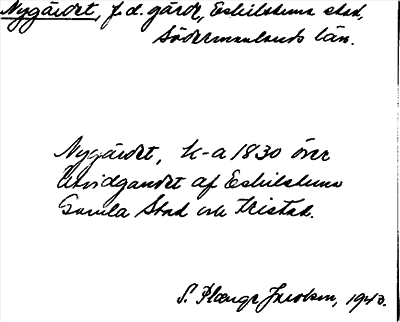 Nygärdet, f.d. gärde, Eskilstuna stad,
Södermanlands län.
Nygärdet, k-a 1830 över
Utvidgandet af Eskilstuna
Gamla Stad och Fristad.
S. Plænge Jacobson, 1940.